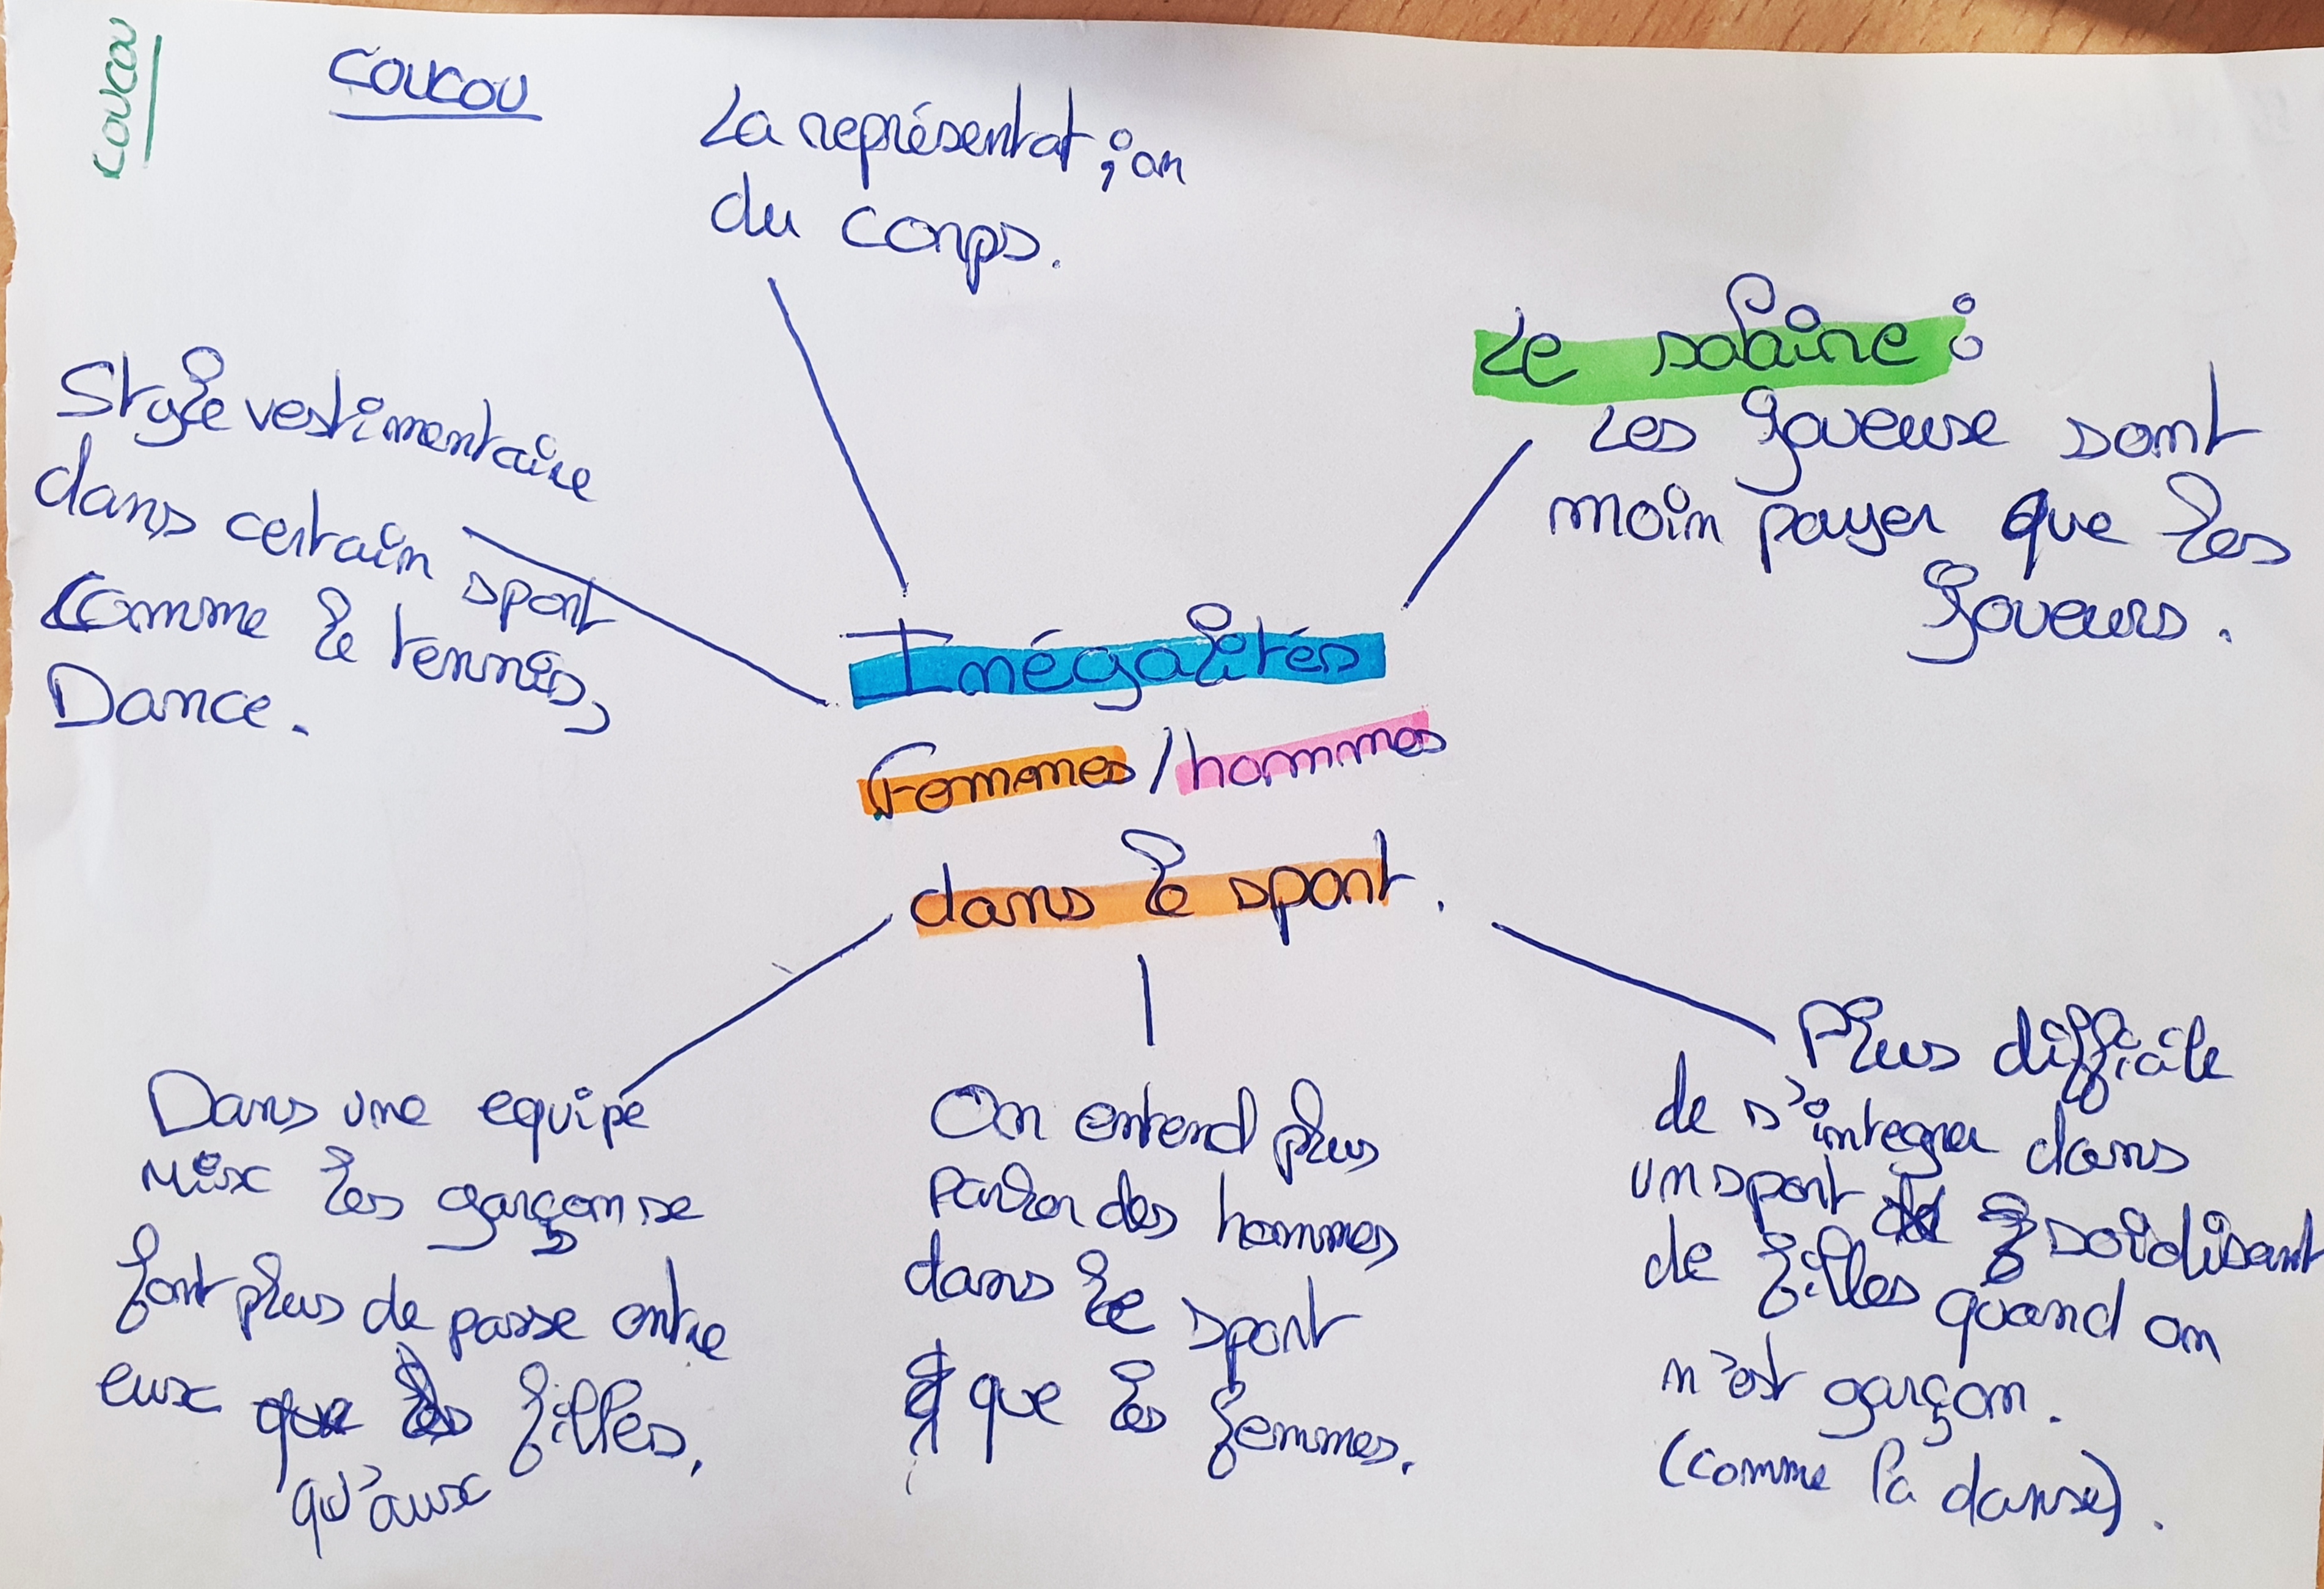 coucou
coucou
La représentation
du corps.
Le salaire :
Les joueuse sont
moin payer que les
joueurs.
Style vestimentaire
dans certain sport
Comme le tennis,
Dance.
Inégalités
femmes / hommes
dans le sport.
Dans une equipe
mix les garçon se
font plus de passe entre
eux filles.
qu'aux
On entend plus
parler des hommes
dans le sport
que les femmes.
Plus difficile
de s'integrer dans
un sport soidisant
de filles quand on
n'est garçon.
(comme la danse).